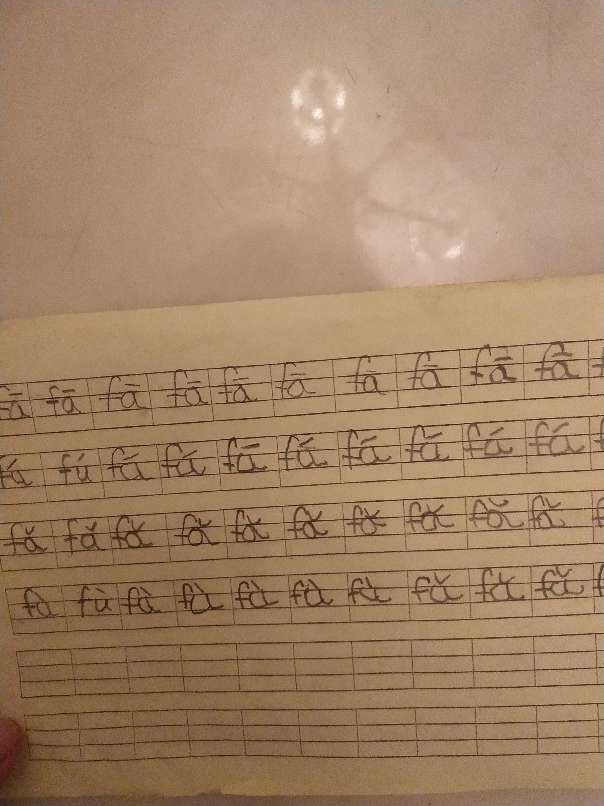 fā fā fā fā fā fā fā fā fā fā
fá fú fá fá fā fá fá fá fá fá
fǎ fǎ fǎ fǎ fǎ fǎ fǎ fǎ fǎ fǎ
fà fù fà fà fà fà fà fǎ fǎ fǎ